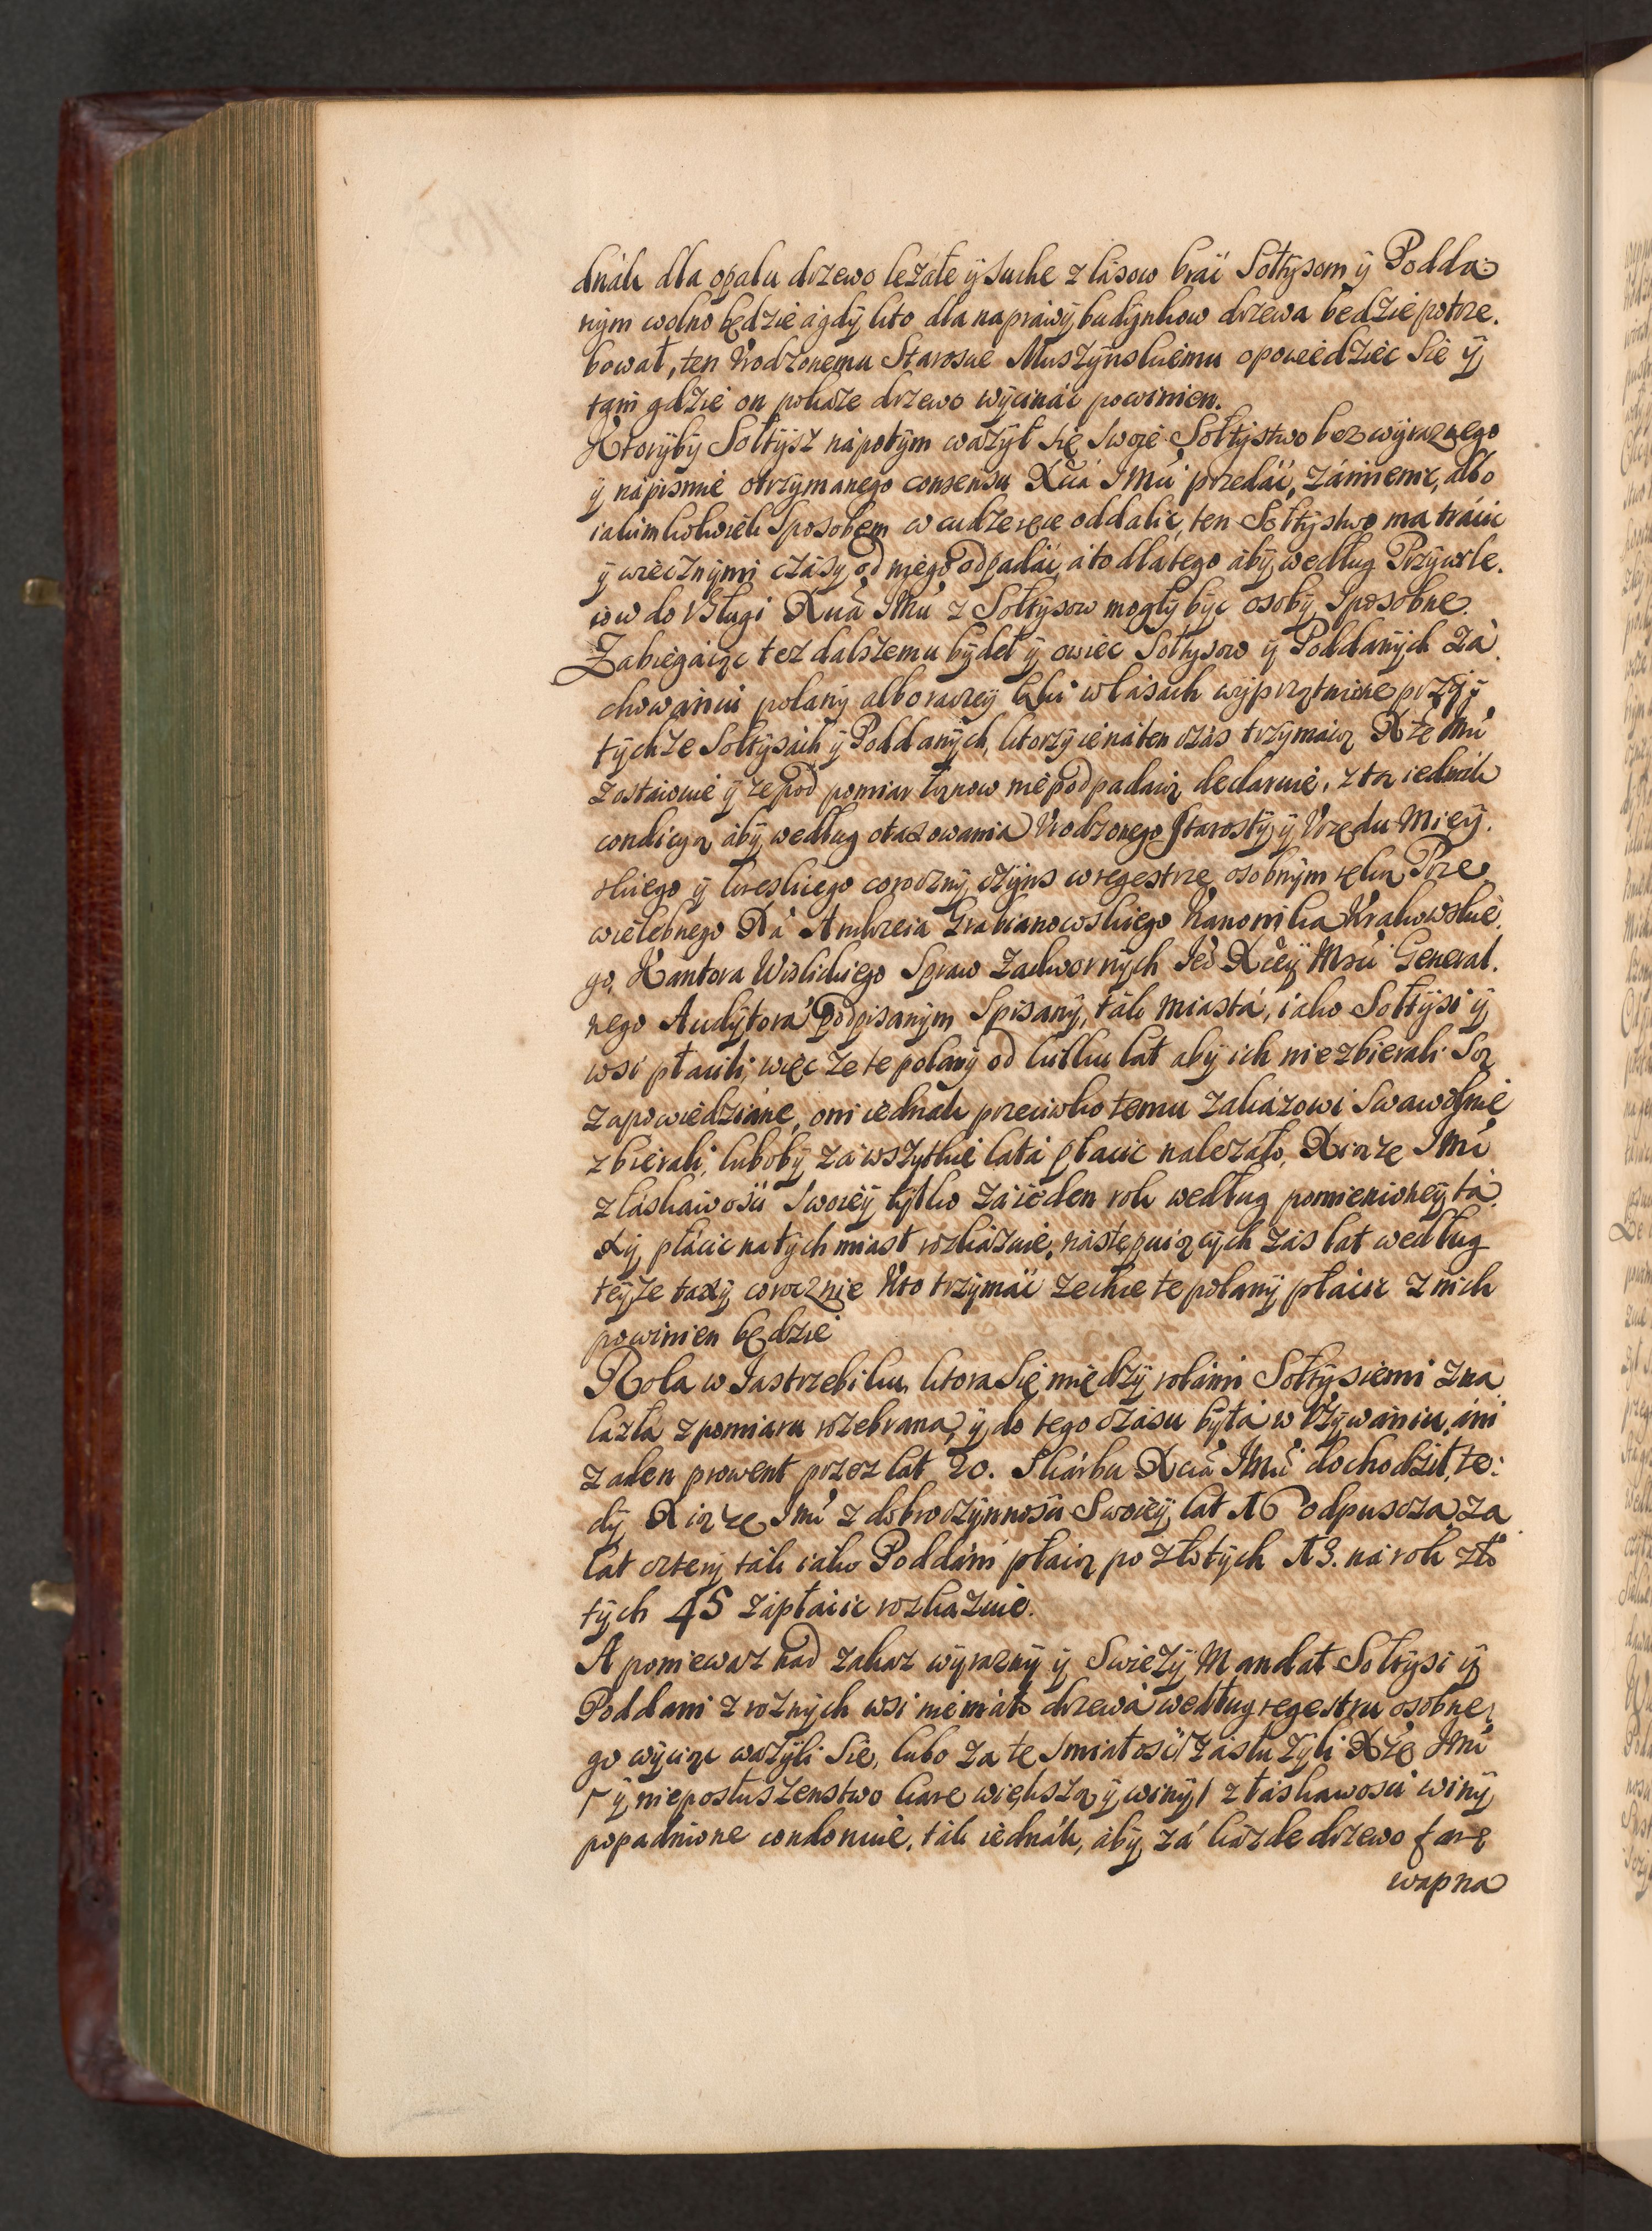 dnák dla opału drzewo lezáłe ÿ suche z lásow bráć Sołtÿsom ÿ Podda-
nÿm wolno będzie ágdÿ kto dla naprawÿ budÿnkow drzewa będzie potrze-
bował, ten Vrodzonemu Starosćie Muszÿnskiemu opowiedziec się ÿ
tam gdzie on pokaze drzewo wÿcináć powinien.
Ktorÿbÿ Sołtÿsz nápotÿm wazÿł się swoie Sołtÿstwo bez wÿraznego
ÿ nápismie otrzÿmanego consensu Xćiá JMći przedáć, zámienic, albo
iakimkolwiek sposobem w cudze ręce oddalic, ten Sołtÿstwo ma trácic
ÿ wiecznÿmi czásÿ od niego odpadáć, áto dlatego ábÿ według Przÿwile-
iow do Vsługi Xćiá JMći z Sołtÿsow mogłÿ bÿc osobÿ sposobne.
Zabiegáiąc tez dalszemu bÿdeł ÿ owiec Sołtÿsow ÿ Poddanÿch zá-
chowániu polanÿ albo raczeÿ łąki w lásach wÿprzątnione przÿ
tÿchze Sołtÿsách ÿ Poddanÿch, ktorzÿ ie náten czás trzÿmáią Xże JMć
zostáwuie ÿ ze pod pomiar łánow nie podpadáią declaruie, z tą iednák
condicÿą ábÿ według otaxowania Vrodzonego Starostÿ ÿ Vrzędu Mieÿ-
skiego ÿ kreskiego coroznÿ czÿns w regestrze osobnÿm ręką Prze-
wielebnego Xá Andrzeia Grabianowskiego Kanonika Krakowskie-
go, Kantora Wislickiego Spraw Zadwornÿch Ieo Xćeÿ Mści General-
nego Audÿtorá podpisanÿm spisanÿ, ták miastá, iako Sołtÿsi ÿ
wsi płacili; więc ze te polanÿ od kilku lat abÿ ich nie zbierali są
zapowiedziáne, oni iednák przeciwko temu zakázowi swawolnie
zbieráli, lubobÿ zá wszÿtkie latá płacic nalezáło, Xiąze JMć
z łaskáwośći swoieÿ tÿlko zá ieden rok według pomienioneÿ tá-
xÿ płácic natÿchmiast roskázuie, nástępuiącÿch zás lat według
teÿze taxÿ corocznie kto trzÿmáć zechce te polanÿ płácic z nich
powinien będzie
Rola w Jastrzebiku, ktora się międzÿ rolámi Sołtÿsiemi zna-
lazłá z pomiaru rozebrana, ÿ do tego czásu bÿłá w Vzÿwániu, áni
zaden prowent przez lat 20. Skárbu Xćiá JMći dochodził, te-
dÿ Xiąze JMć z dobroczÿnnośći swoieÿ lat 16 odpuscza, za
lat czterÿ ták iako Poddáni płáią po złotÿch 13. ná rok zło
tÿch 45 zápłácic roskázuie.
A poniewaz nad zakaz wÿraznÿ ÿ Swiezÿ Mandat Sołtÿsi ÿ
Poddani z roznÿch wsi niemáło drzewá według regestru osobne-
go wÿciąc wazÿli się, lubo za te smiałość zásłuzÿli Xże JMć
/ ÿ nieposłuszenstwo kare większą ÿ winÿ / z łaskawośći winÿ
popadnione condonuie, ták iednák, ábÿ zá kázde drzewo farę
wapna